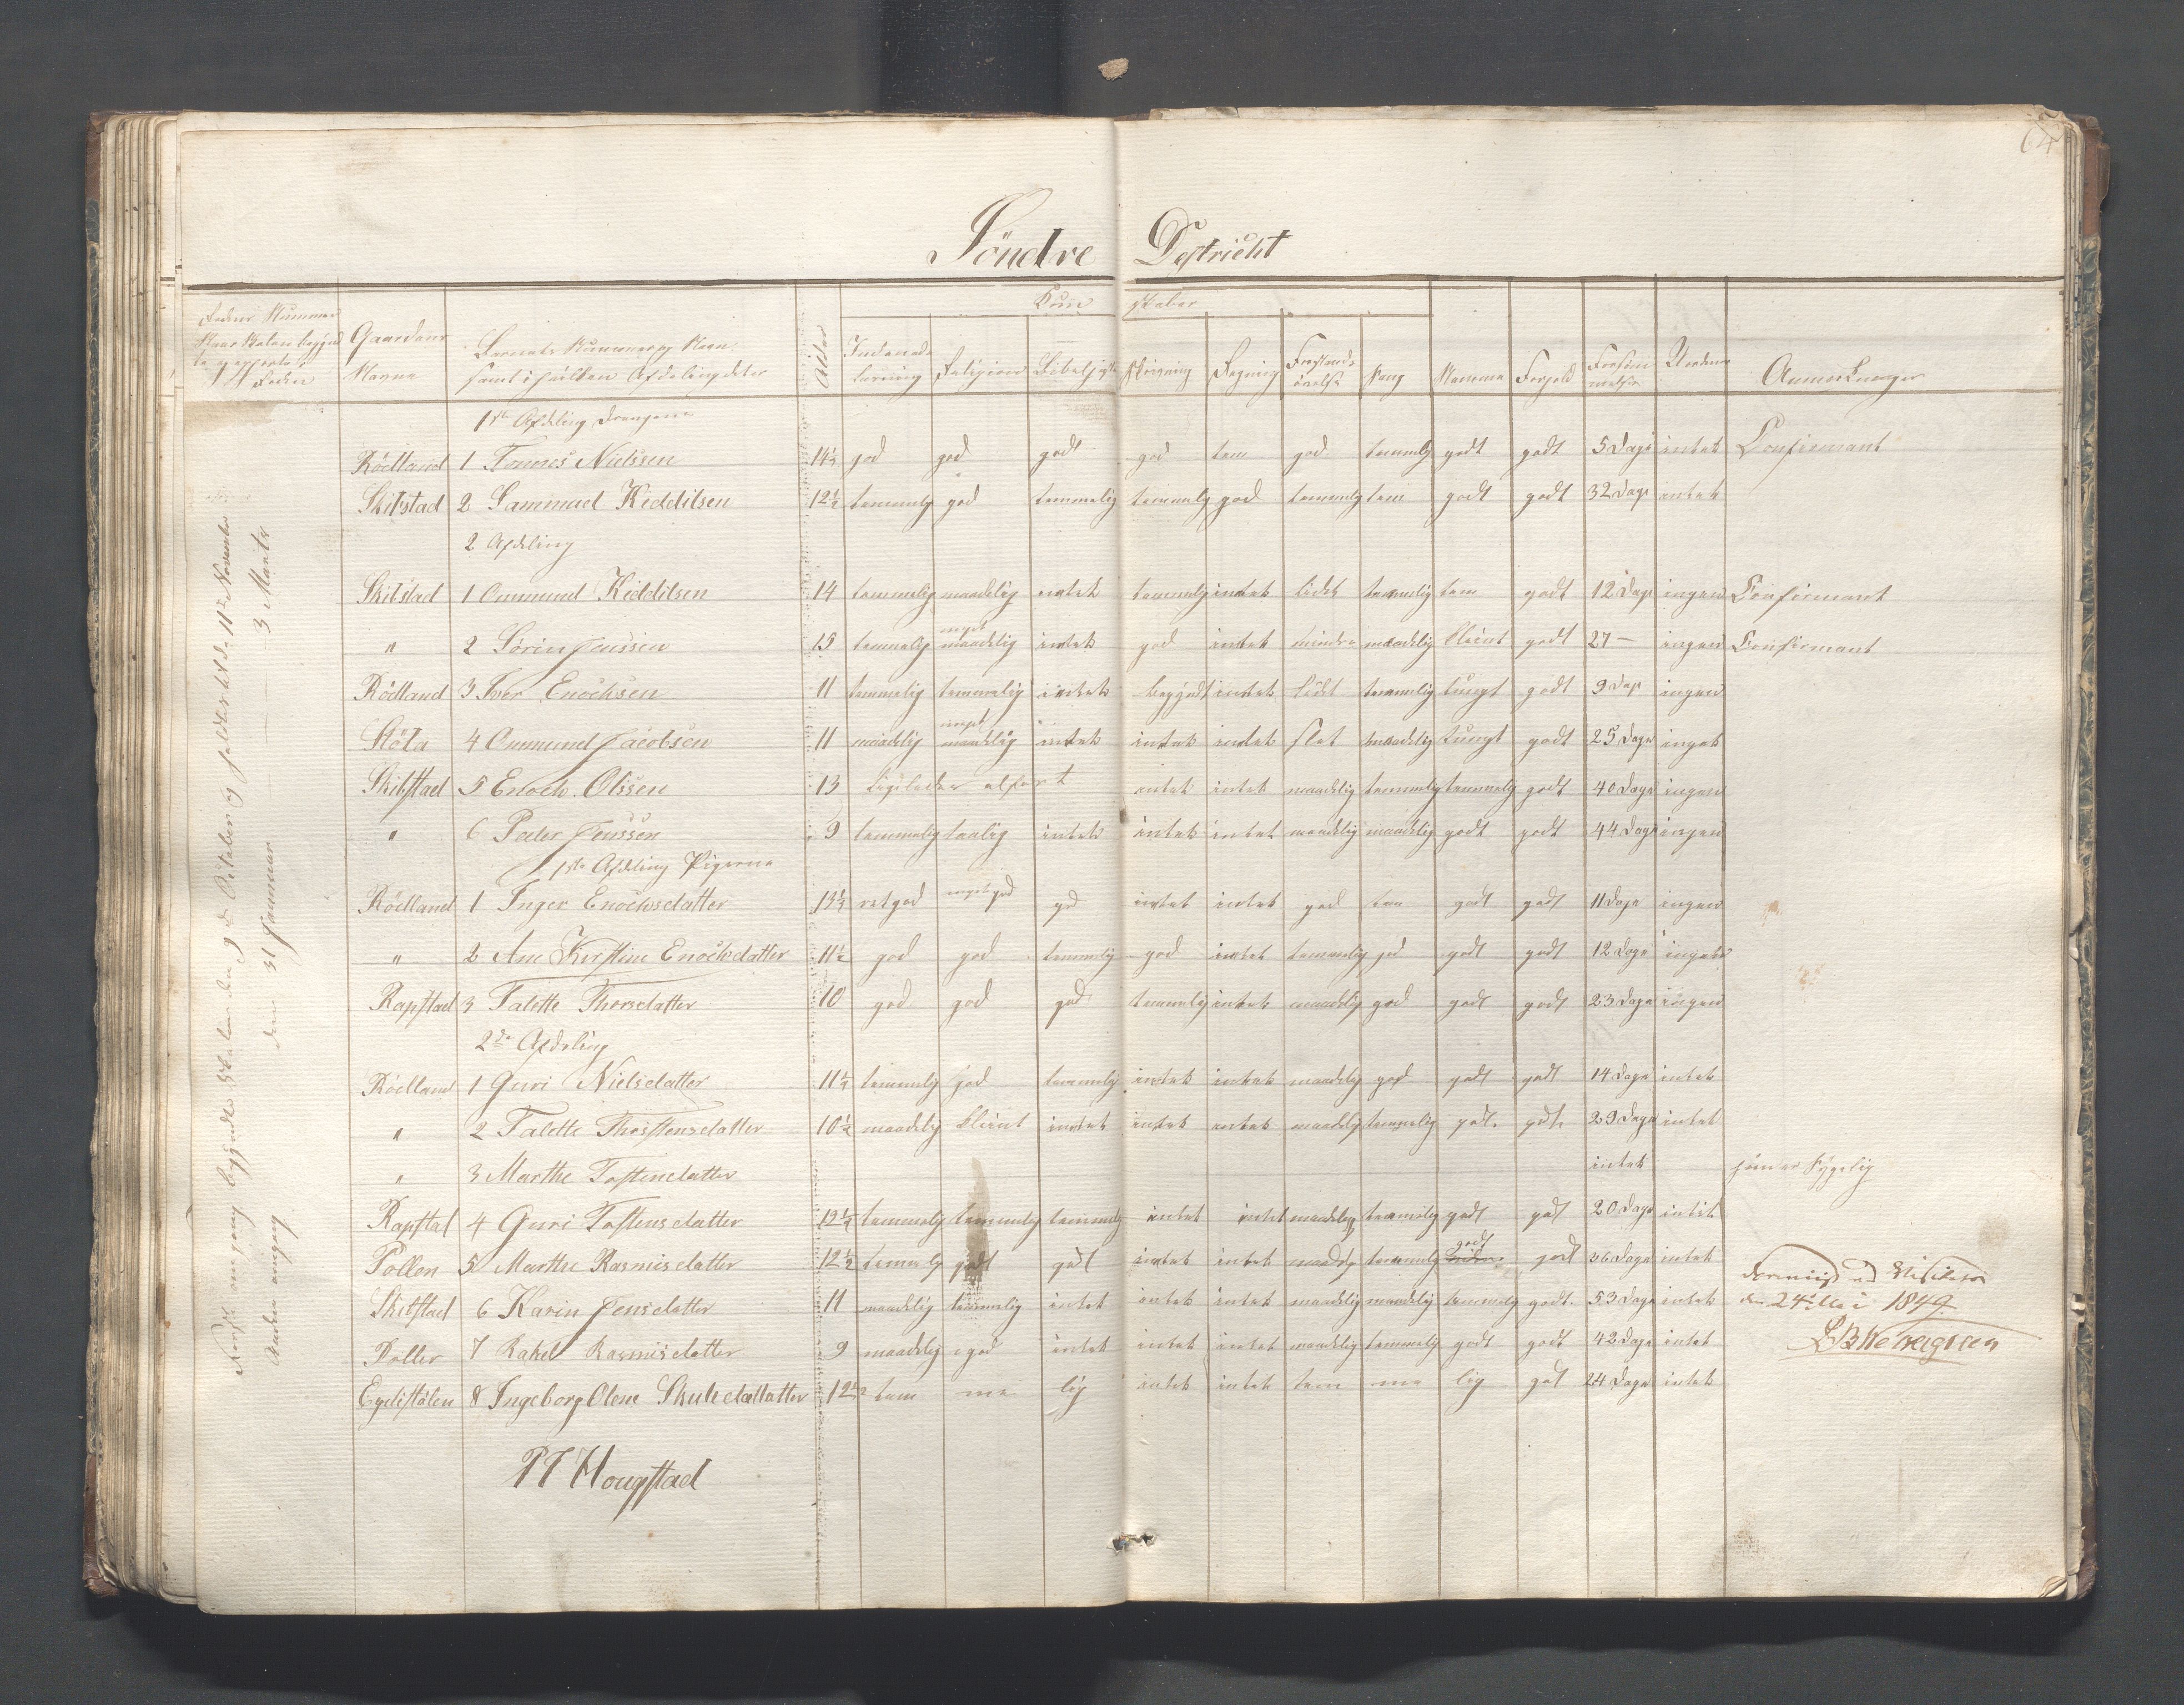 64
Söndre Destricht
Kund skaber
Rodens Nummer
Naar Skolen begynd
Roden
Gaardens
Navne
Barnets Nummer og Navn
samt i hvilken Afdeling deter
Alder
Indenads
læsning
Religion
Skrivning
Regning
Forstands
övelse
Sang
Nemme
Forhold
Forsöm
melser
Anmerkninger
förste omgang begyndte Skolen den 9de October og holdtes til de 11te November
Anden omgang den 31 Januar 3 Marts
1ste Afdeling Drengene
Rödland 1 Tonnes Nielssen 14½ god god godt god tem god temmelig godt godt 5 Dage intet Confirmant
Skibstad 2 Sammuel Keddilsen 12½ temmelig god temmelig temmelig god temmelig tem godt godt 32 dage intet
2 Afdeling
Skibstad 1 Ommund Kedditsen 14 temmelig maadelig intet temmelig intet lidet temmelig tem godt 12 Dage ingen Confirmant
" 2 Sörin Jenssen 15 temmelig meget maadelig intet god intet mindre maadelig Sleint godt 27 — ingen Confirmant
Rödland 3 Iver Enochsen 11 temmelig temmelig intet begyndt intet lidet temmelig tungt godt 9 Dage ingen
Stöla 4 Ommund Jacobsen 11 maadelig meget maadelig intet intet intet slet maadelig tungt godt 25 Dage inget
Skibstad 5 Enoch Olssen 13 intet intet maadelig temmelig temmelig godt 40 Dage ingen
" 6 Peder Jenssen 9 temmelig taalig intet intet intet maadelig maadelig godt godt 44 Dage ingen
1ste Afdeling Pigerne
Rödland 1 Inger Enochsdatter 13½ ret god meget god god intet intet god tem godt godt 11 Dage ingen
" 2 Ane Kirstine Enochdatter 11½ god god temmelig god intet temmelig god godt godt 12 Dage ingen
Rapstad 3 Talette Thorsdatter 10 god god god temmelig intet maadelig god godt godt 23 Dage ingen
2de Afdeling
Rödland 1 Guri Nielsdatter 11½ temmelig god temmelig intet intet maadelig god godt godt 14 Dage intet
" 2 Talette Thorstensdatter 10½ maadelig Sleint intet intet intet maadelig temmelig godt. godt. 29 Dage intet
" 3 Marthe Tostendatter intet hun er sygelig
Rapstad 4 Guri Tostensdatter 12½ temmelig temmelig temmelig intet intet maadelig temmelig godt godt 20 Dage intet
Pollen 5 Marthe Rasmisdatter 12½ temmelig godt godt intet intet maadelig temmelig godt godt 36 Dage intet
Skibstad 6 Karin Jensdatter 11 maadelig temmelig intet intet intet maadelig maadelig temmelig godt. 53 Dage intet
Poller 7 Rakel Rasmisdatter 9 maadelig god intet intet intet maadelig temmelig godt godt 42 Dage intet
Egelistölen 8 Ingeborg Olene Skuledattatter 12½ tem me lig intet intet tem me lig godt 24 Dage intet
ved Visitats
den 24de Mai 1849.
P T Hougstad